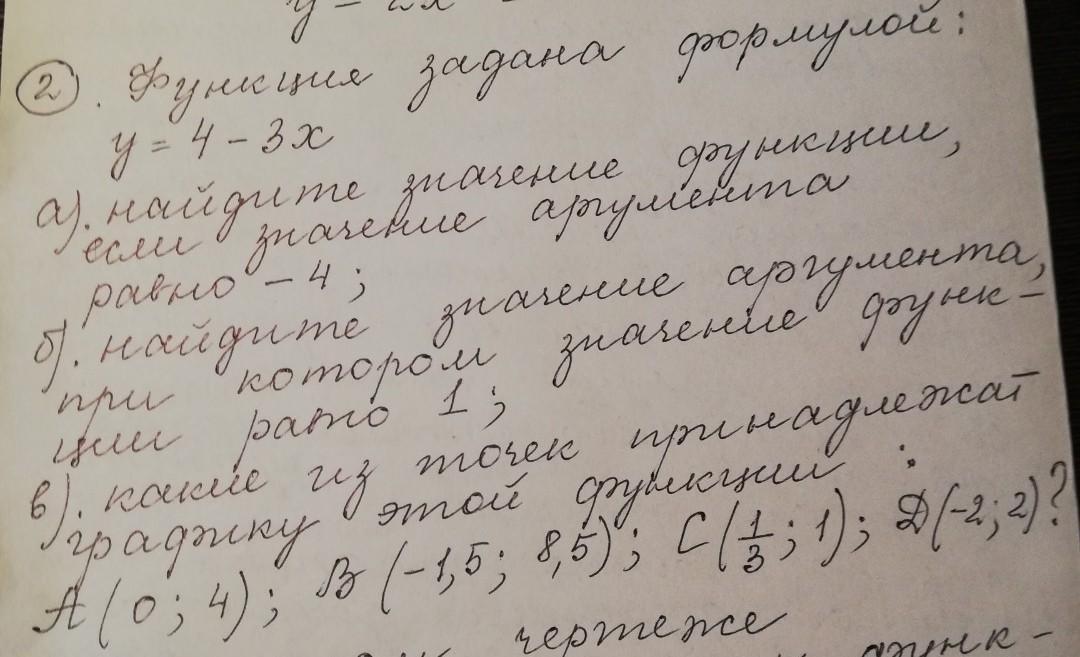 2. Функция задана формулой:
y = 4 - 3x
а). найдите значение функции,
если значение аргумента
равно -4;
б). найдите значение аргумента,
при котором значение функ-
ции равно 1;
в). какие из точек принадлежат
графику этой функции:
A(0; 4); B(-1,5; 8,5); C(1/3; 1); D(-2; 2)?
чертеже
функ-